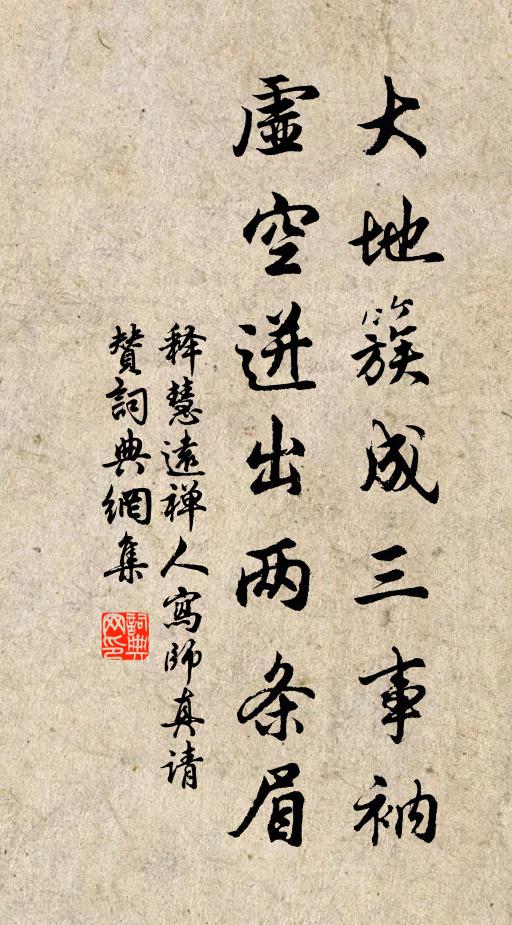 大地簇成三事衲
虚空迸出两条眉
释慧遠禅人寫師真请
赞詞典網集
詞典
网印